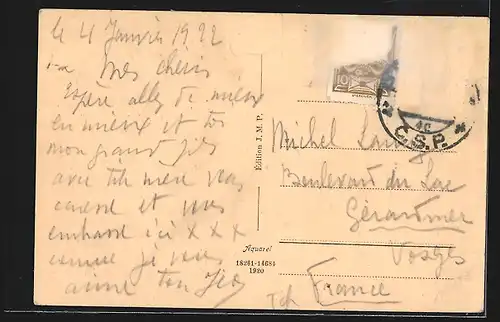 le 4 Janvier 1922
mes chéris
espère allez de mieux
en mieux et toi
mon grand fils
avec ta mère vous
caresse et vous
embrasse ici x x x
comme je vous
aime ton
Édition J. M. P.
Aquarel
18261-14684
1920
C.S.P.
Michel
Boulevard du Lac
Gérardmer
Vosges
France